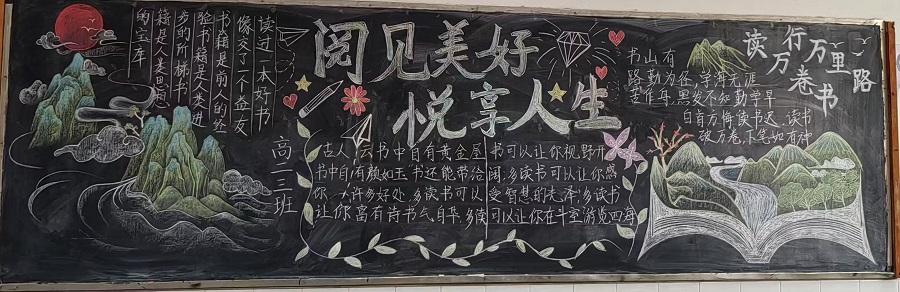 阅见美好
悦享人生
读过一本好书
像交了一个益友
书籍是前人的经
验书籍是人类进
步的阶梯书
籍是人类思想
的宝库
高一三班
古人云书中自有黄金屋
书中自有颜如玉书还能带给
你许多好处多读书可以
让你富有诗书气自华多读
书可以让你视野开
阔多读书可以让你感
受智慧的光泽多读书
可以让你在斗室游览四海
书山有
路勤为径,学海无涯
苦作舟黑发不知勤学早
白首方悔读书迟 读书
破万卷下笔如有神
读万卷书
行万里路